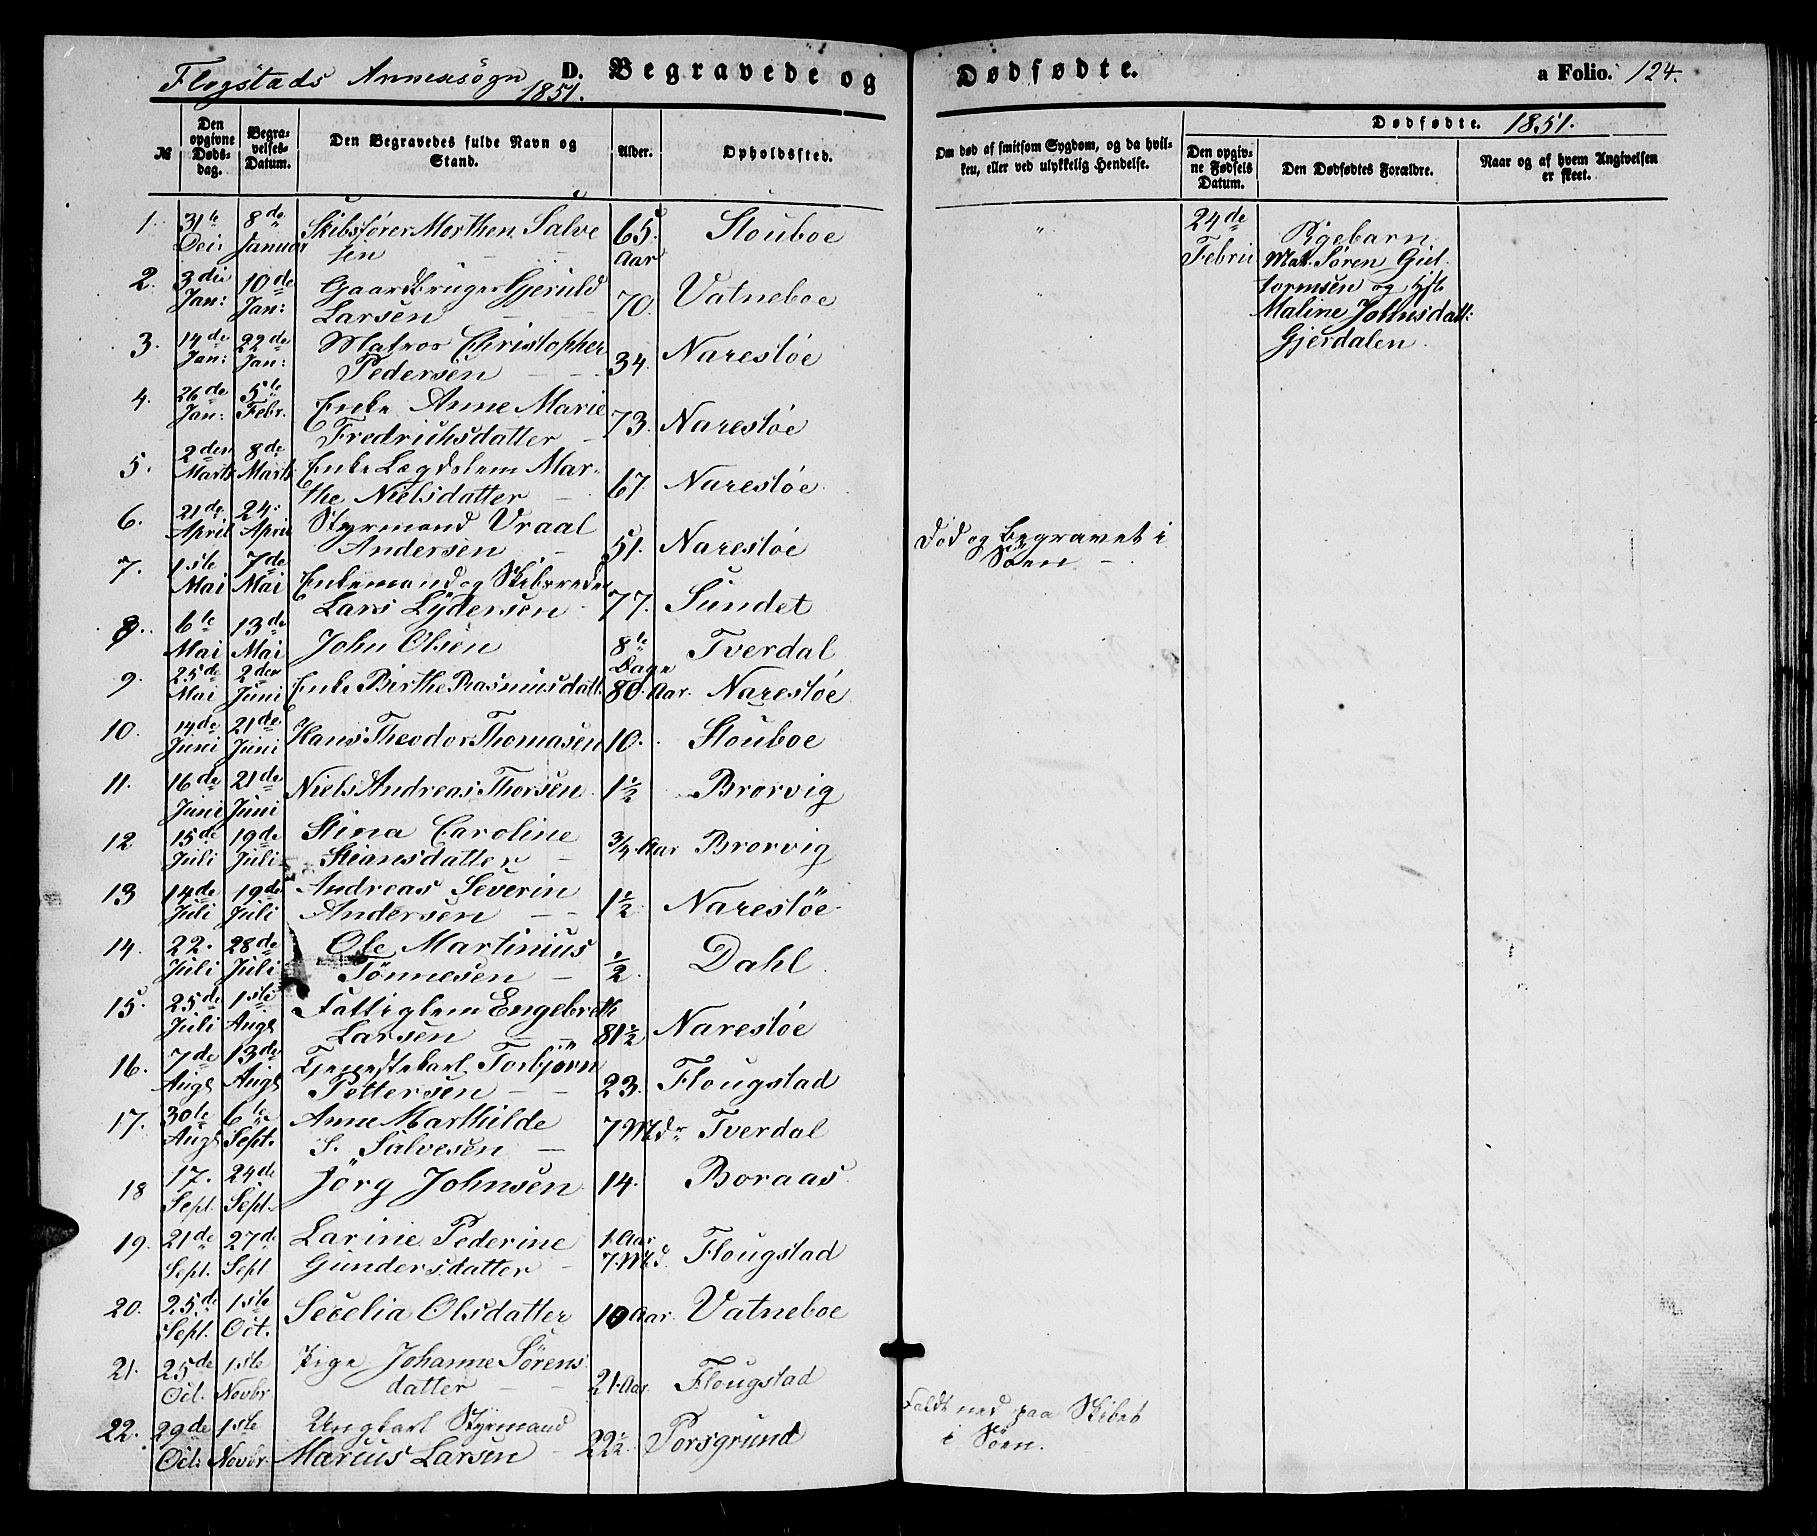 Flogstads Annexsogn D. Begravede og Dødfødte. a Folio. 124.
1851.
№ Den opgivne Døds-dag. Begra-velses-Datum. Den Begravedes fulde Navn og Stand. Alder. Opholdssted. Om død af smitsom Sygdom, og da hvil-ken, eller ved ulykkelig Hendelse.
Dødfødte. 1851.
Den opgiv-ne Fødsels Datum. Den Dødfødtes Forældre. Naar og af hvem Angivelsen er skeet.
1. 31te 8de Skibsfører Morthen Salve 65. Stouboe "
Dec: Januar sen Aar
2. 3die 10de Gaardbruger Gjeruld
Jan: Jan: Larsen 70. Vatneboe "
3. 14de 22de Matros Christopher
Jan: Jan: Pedersen 34. Narestøe
4. 26de 5te Enke Anne Marie
Jan: Febr. Fredrichsdatter 73. Narestøe
5. 2den 8de Enke Lægdslem Mar-
Marts Marts the Nielsdatter 67. Narestøe
6. 21de 24. Styrmand Vraal
April April Andersen 51. Narestøe Død og Begravet i
Søen
7. 1ste 7de Enkemand og Skibsreder
Mai Mai Lars Lydersen 77. Sundet
8. 6te 13de John Olsen 8te Tverdal
Mai Mai Dage
9. 25de 2den Enke Birthe Rasmusdatt. 80. Aar. Narestøe
Mai Juni
10. 14de 21de Hans Theodor Thomasen 10. Stouboe
Juni Juni
11. 16de 21de Niels Andreas Thorsen 1½ Brorvig
Juni Juni
12 15de 19de Stina Caroline ¾ Aar Brorvig
Juli Juli Stiansdatter
13 14de 19de Andreas Severin 1½ Narestøe
Juli Juli Andersen
14. 22. 28de Ole Martinius ½ Dahl
Juli Juli Tönnesen
15. 25de 1ste Fattiglem Engebreth
Juli Augs Larsen 81½ Narestøe
16. 7de 13de Tjenestekarl Torbjörn
Augs Augs Pettersen 23. Flougstad
17. 30te 6te Anne Marthilde 7 Mdr Tverdal
Augs Sept. S. Salvesen
18 17. 24de Jörg Johnsen 14. Boraas
Sept. Sept.
19. 21de 27de Larine Pederine 1. Aar
Sept. Sept Gundersdatter 7. Md. Flougstad
20. 25de 1ste Secelia Olsdatter 10 Aar. Vatneboe
Sept. Oct.
21. 25de 1ste Pige Johanne Sörens
Oct. Novbr datter 21. Aar Flougstad
22. 29de 1ste Ungkarl Styrmand
Oct: Novbr Marcus Larsen 22½ Porsgrund Faldt ned paa Skibet
i Søen.
24de Pigebarn
Febru Mat. Søren Gut-
tormsen og
Maline Johnsdatt:
Gjerdalen